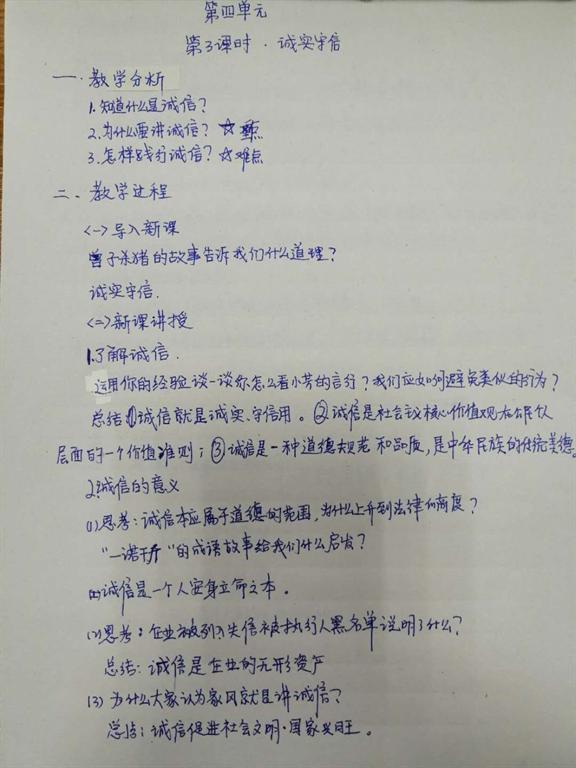 第四单元
第3课时·诚实守信
一·教学分析
1.知道什么是诚信?
2.为什么要讲诚信? ☆重点
3.怎样践行诚信? ☆难点
二、教学过程
<一>导入新课
曾子杀猪的故事告诉我们什么道理?
诚实守信.
<二>新课讲授
1.了解诚信.
运用你的经验谈一谈你怎么看小芳的言行?我们应如何避免类似的行为?
总结①诚信就是诚实、守信用。②诚信是社会主义核心价值观在公民个人
层面的一个价值准则;③诚信是一种道德规范和品质,是中华民族的传统美德。
2.诚信的意义
(1)思考:诚信本应属于道德的范围,为什么上升到法律的高度?
“一诺千斤”的成语故事给我们什么启发?
诚信是一个人安身立命之本。
(2)思考:企业被列入失信被执行人黑名单说明了什么?
总结:诚信是企业的无形资产
(3)为什么大家认为家风就是讲诚信?
总结:诚信促进社会文明·国家兴旺。